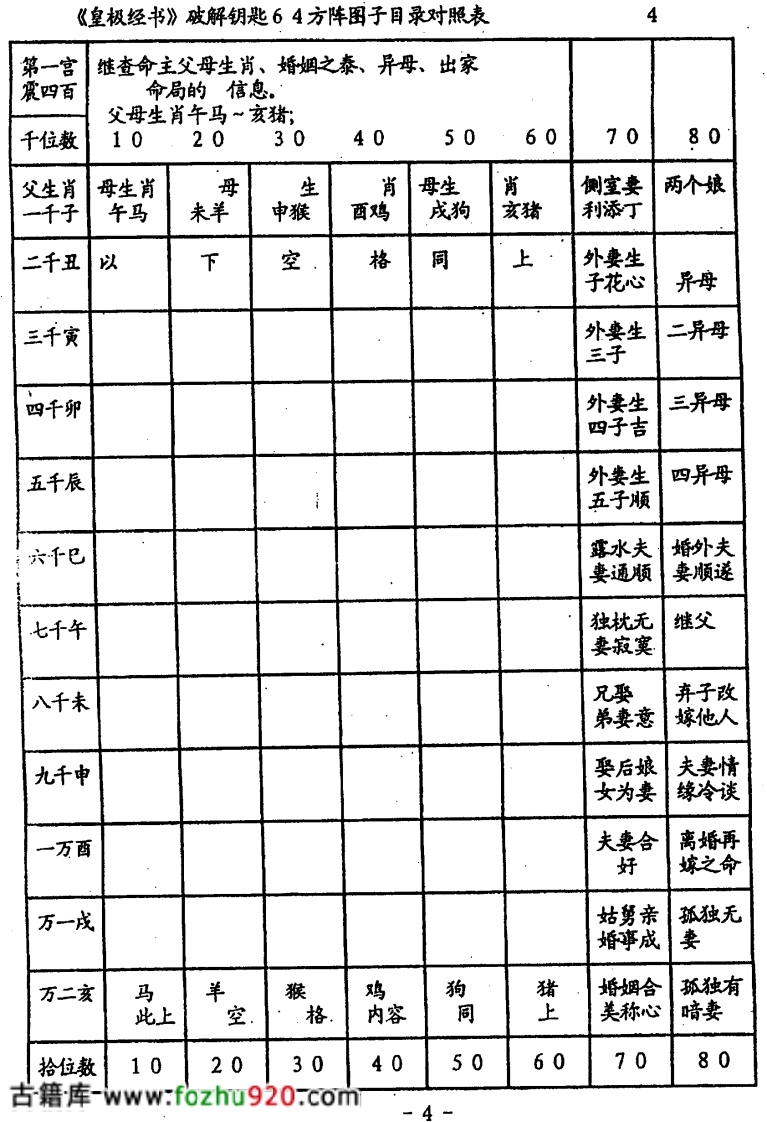 《皇极经书》破解钥匙64方阵图子目录对照表 4
第一宫 继查命主父母生肖、婚姻之泰、异母、出家
震四百 命局的 信息。
父母生肖午马~亥猪;
千位数 10 20 30 40 50 60 70 80
父生肖 母生肖 母 生 肖 母生 肖 侧室妻 两个娘
一千子 午马 未羊 申猴 酉鸡 戌狗 亥猪 利添丁
二千丑 以 下 空 格 同 上 外妻生
子花心 异母
三千寅 外妻生 二异母
三子
四千卯 外妻生 三异母
四子吉
五千辰 外妻生 四异母
五子顺
六千巳 露水夫 婚外夫
妻通顺 妻顺遂
七千午 独枕无 继父
妻寂寞
八千未 兄娶 弃子改
弟妻意 嫁他人
九千申 娶后娘 夫妻情
女为妻 缘冷谈
一万酉 夫妻合 离婚再
好 嫁之命
万一戌 姑舅亲 孤独无
婚事成 妻
万二亥 马 羊 猴 鸡 狗 猪 婚姻合 孤独有
此上 空 格 内容 同 上 美称心 暗妻
拾位数 10 20 30 40 50 60 70 80
古籍库-www.fozhu920.com
- 4 -